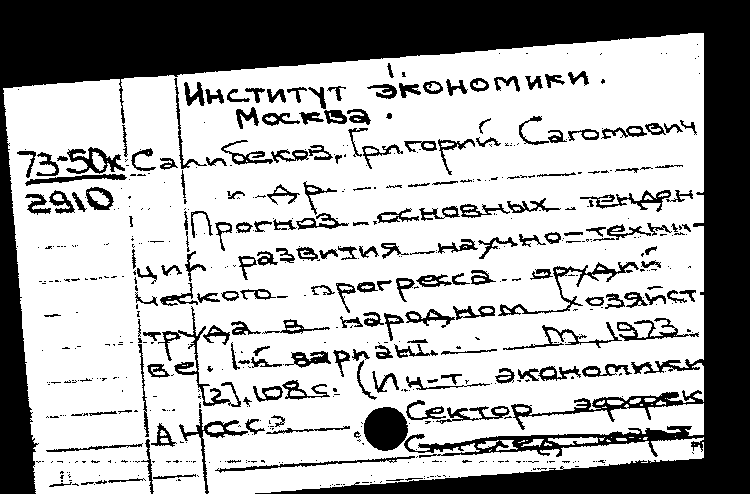 Институт экономики.
Москва.
73-50к Салибеков, Григорий Сагомович
2910 и др.
Прогноз основных тенден-
ций развития научно-техни-
ческого прогресса орудий
труда в народном хозяйст-
ве. 1-й вариант. М., 1973.
[2], 108 с. (Ин-т. экономики
АН СССР Сектор эффек
След. карт